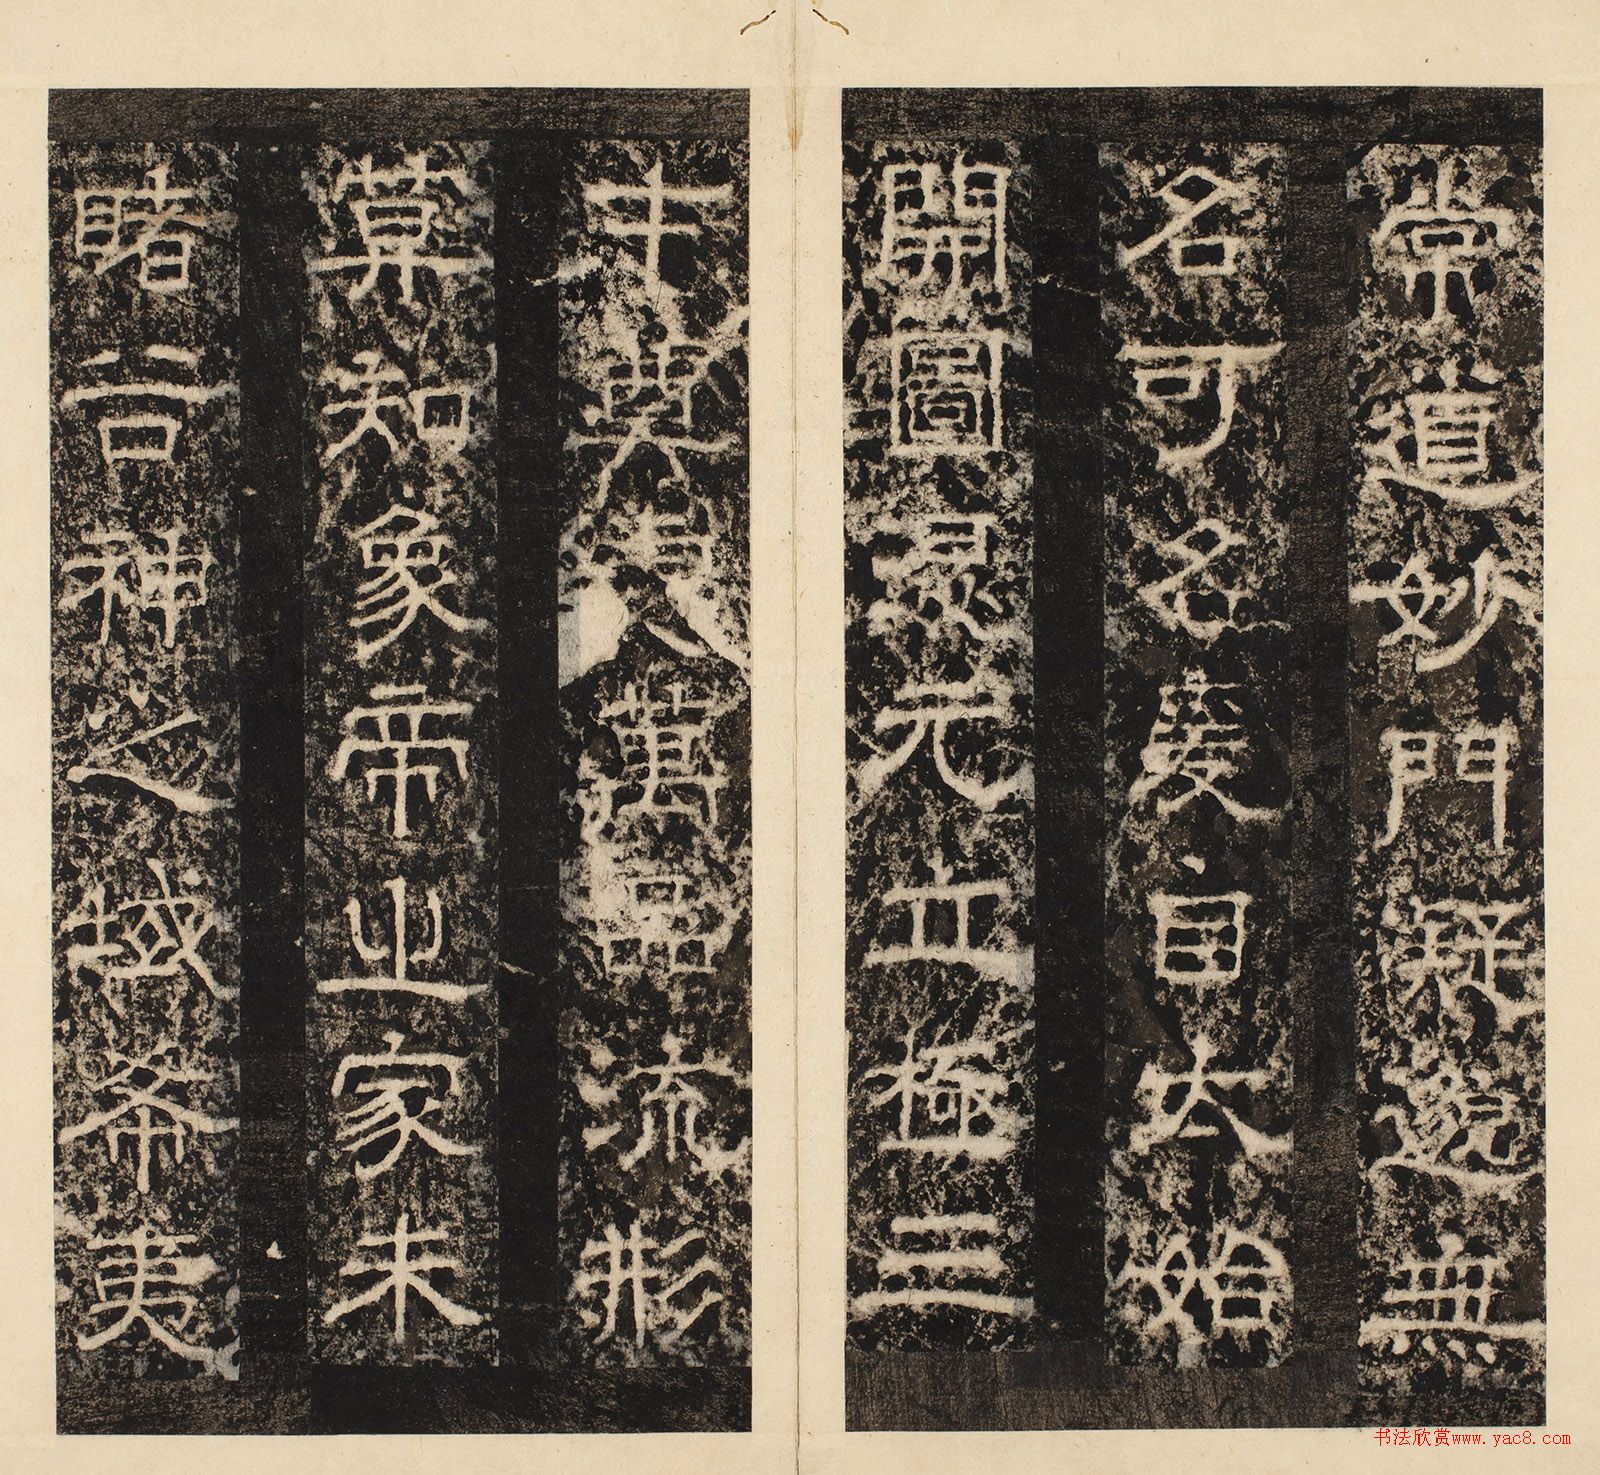 常道妙門疑邈無
名可名爰自太始
開圖混元立極三
才奠萬品流形
莫知象帝之家未
睹谷神之域希夷
书法欣赏www.yac8.com